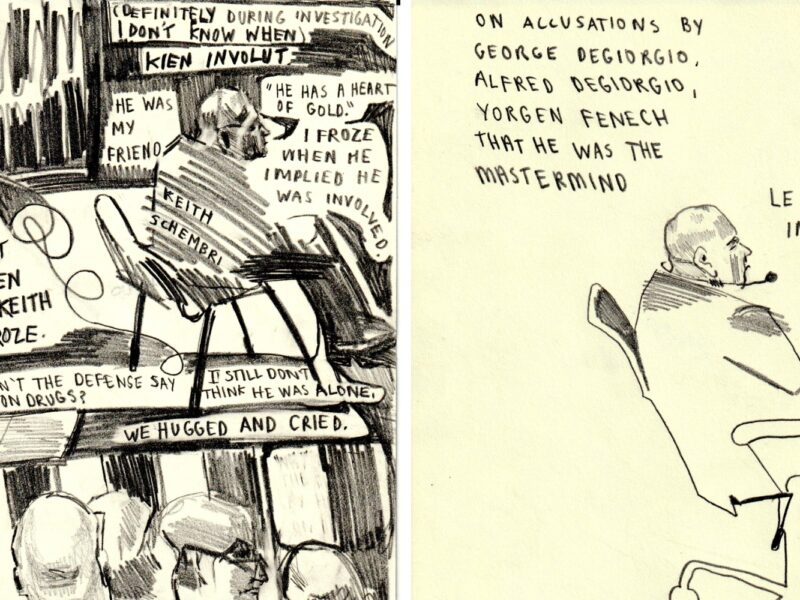 (DEFINITELY DURING INVESTIGATION
I DON'T KNOW WHEN)
KIEN INVOLUT.
HE WAS
MY
FRIEND
"HE HAS A HEART
OF GOLD."
I FROZE
WHEN HE
IMPLIED HE
WAS INVOLVED.
KEITH
SCHEMBRI
T
EN
KEITH
ROZE.
N'T THE DEFENSE SAY
ON DRUGS?
I STILL DON'T
THINK HE WAS ALONE.
WE HUGGED AND CRIED.
ON ACCUSATIONS BY
GEORGE DEGIORGIO,
ALFRED DEGIORGIO,
YORGEN FENECH
THAT HE WAS THE
MASTERMIND
LE
I